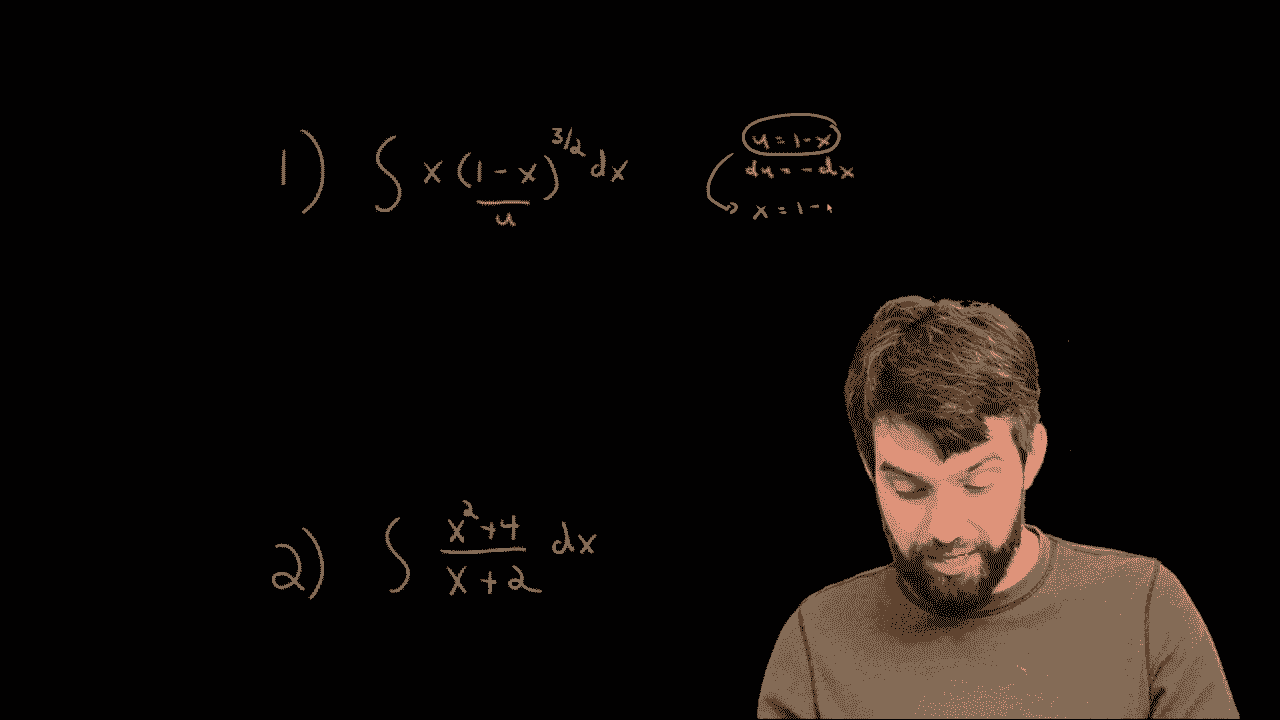 1) ∫ x (1-x)^3/2 dx
u
u = 1-x
du = -dx
x = 1-
2) ∫ x^2+4 / x+2 dx